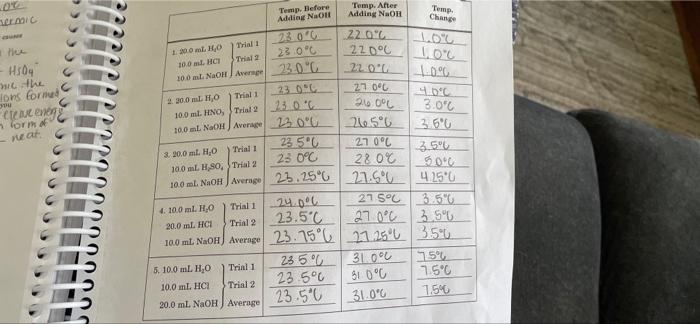 Temp. Before Adding NaOH Temp. After Adding NaOH Temp. Change
1. 20.0 mL H₂O Trial 1 23.0°C 22.0°C 1.0°C
10.0 mL HCl Trial 2 23.0°C 22.0°C 1.0°C
10.0 mL NaOH Average 23.0°C 22.0°C 1.0°C
2. 20.0 mL H₂O Trial 1 23.0°C 27.0°C 4.0°C
10.0 mL HNO₃ Trial 2 23.0°C 26.0°C 3.0°C
10.0 mL NaOH Average 23.0°C 26.5°C 3.5°C
3. 20.0 mL H₂O Trial 1 23.5°C 27.0°C 3.5°C
10.0 mL H₂SO₄ Trial 2 23.0°C 28.0°C 5.0°C
10.0 mL NaOH Average 23.25°C 27.5°C 4.25°C
4. 10.0 mL H₂O Trial 1 24.0°C 27.5°C 3.5°C
20.0 mL HCl Trial 2 23.5°C 27.0°C 3.5°C
10.0 mL NaOH Average 23.75°C 27.25°C 3.5°C
5. 10.0 mL H₂O Trial 1 23.5°C 31.0°C 7.5°C
10.0 mL HCl Trial 2 23.5°C 31.0°C 7.5°C
20.0 mL NaOH Average 23.5°C 31.0°C 7.5°C
the
HSO4⁻
the
ions formed
you
energy
form of
heat.